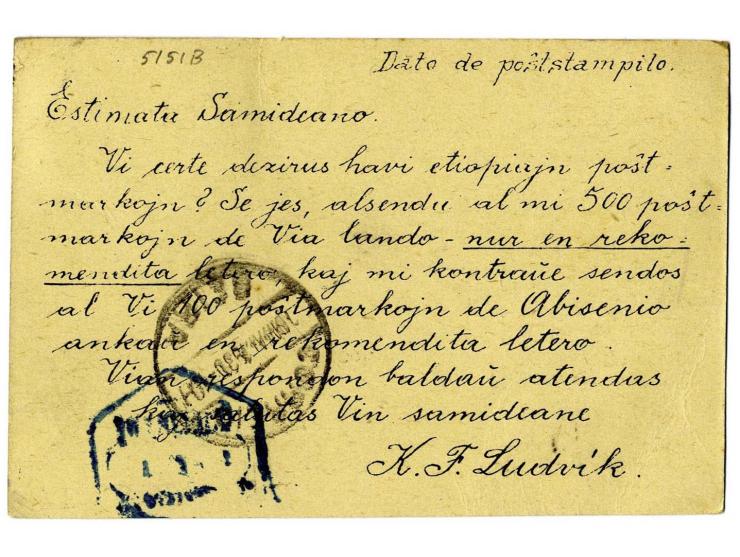 5151B
Dato de poŝtstampilo.
Estimata Samideano.
Vi certe dezirus havi etiopiajn poŝt=
markojn? Se jes, alsendu al mi 500 poŝt=
markojn de Via lando - nur en reko=
mendita letero, kaj mi kontraŭe sendos
al Vi 100 poŝtmarkojn de Abisenio
ankaŭ en rekomendita letero.
Vian respondon baldaŭ atendas
kaj salutas Vin samideane
K. F. Ludvík.